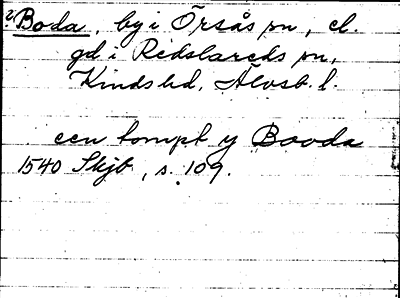 ? Boda, by i Örsås sn, el.
gd i Redslareds sn,
Kinds hd, Älvsb. l.
een tompt y Booda
1540 Skjb, s. 109.